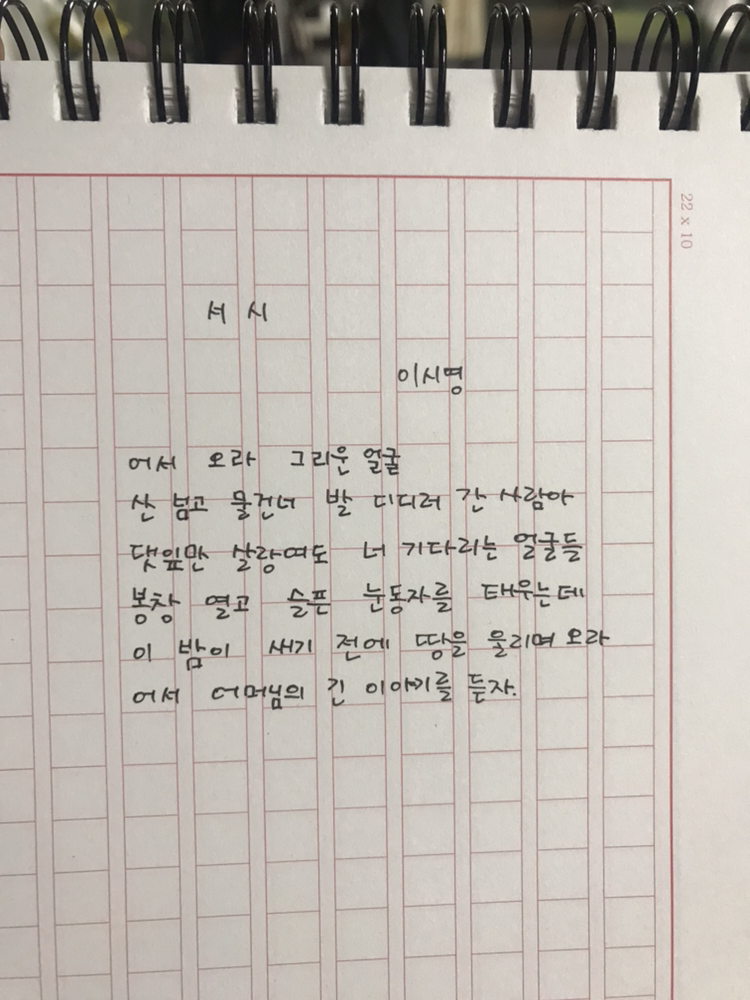 서 시
이시영
어서 오라 그리운 얼굴
산 넘고 물건너 발 디디러 간 사람아
댓잎만 살랑여도 너 기다리는 얼굴들
봉창 열고 슬픈 눈동자를 태우는데
이 밤이 새기 전에 땅을 울리며 오라
어서 어머님의 긴 이야기를 듣자.
22 x 10